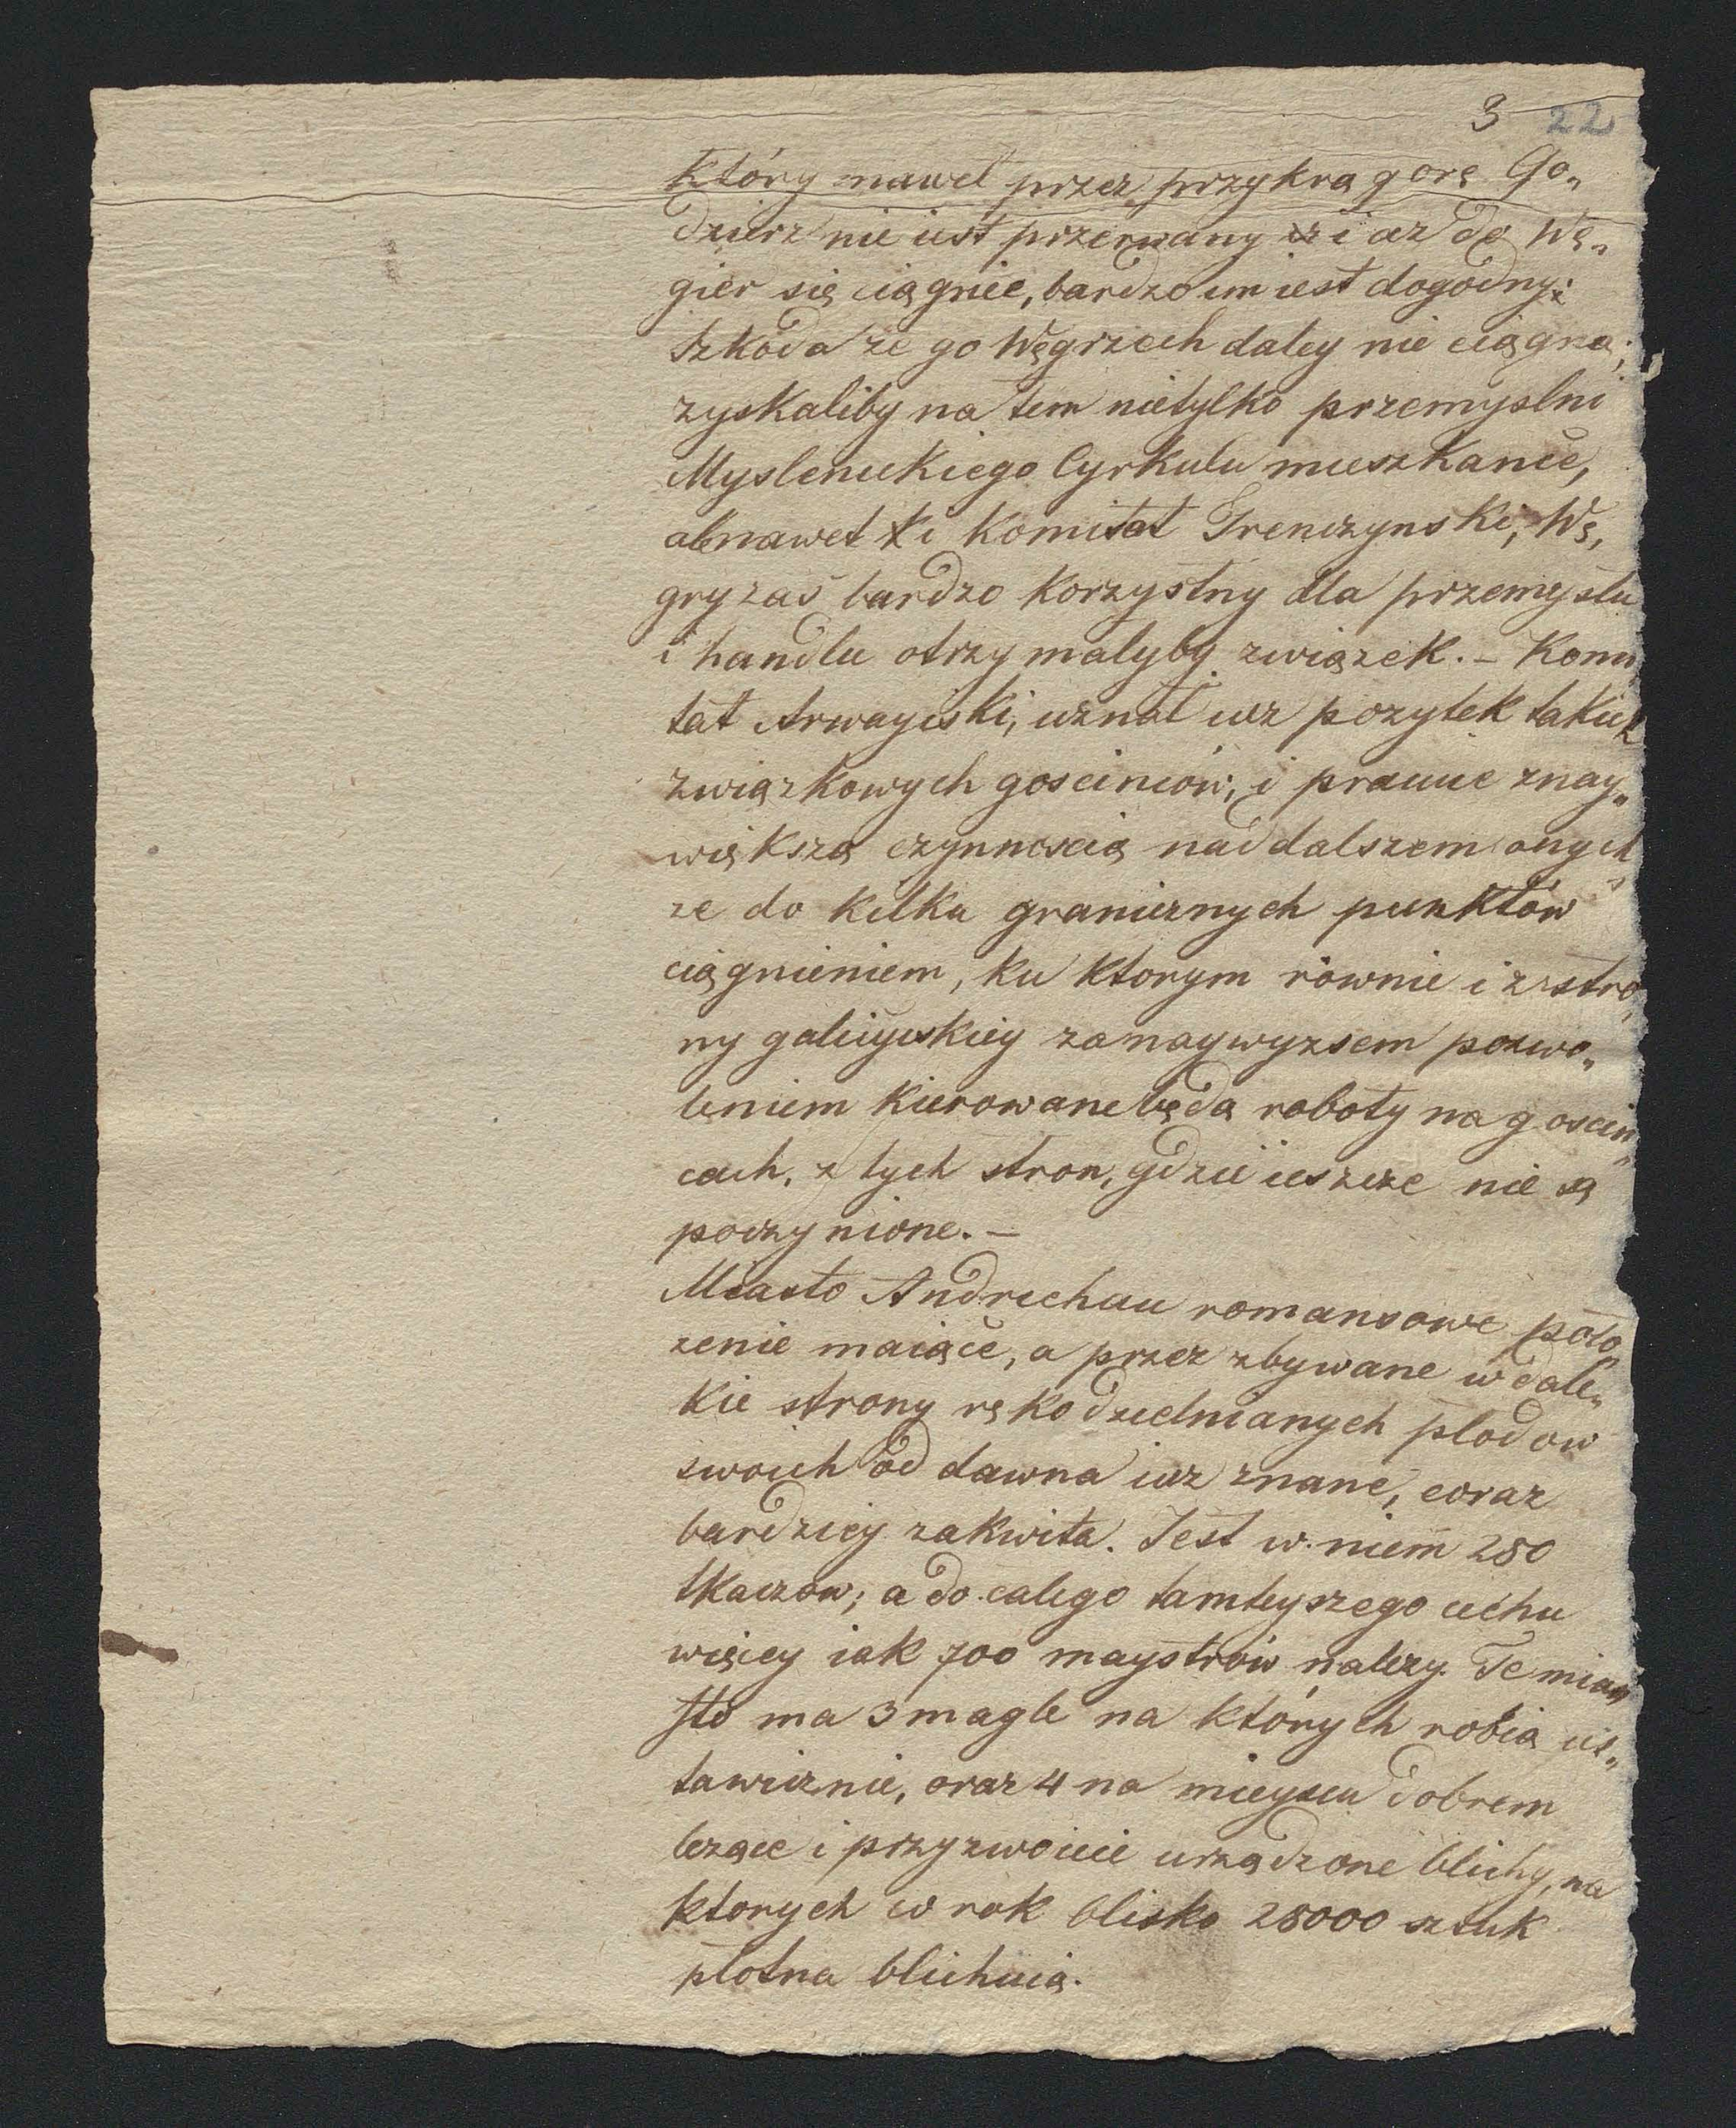 3 22
który nawet przez przykrą gorę Go„
dzierz nie iest przerwany i az do Wę„
gier się ciągnie, bardzo im iest dogodny;
Szkoda że go Węgrzech daley nie ciągną;
zyskaliby na tem nietylko przemyslni
Myslenickiego Cyrkulu mieszkance,
ale nawet i Komitat Trenczynski, Wę„
gry zaś bardzo korzystny dla przemyslu
i handlu otrzymalyby związek. – Komi„
tat Arwayski, uznal iuz pozytek takich
związkowych goscinców, i pracuie z nay„
większą czynnoscią nad dalszem onych„
ze do kilku granicznych punktów
ciągnieniem, ku ktorym równie i z stro„
ny galicyiskiey za naywyzsem pozwo„
leniem kierowane będą roboty na goscin„
cach, z tych stron, gdzie ieszcze nie są
poczynione. –
Miasto Andrichau romansowe polo„
zenie maiące, a przez zbywane w dale„
kie strony rękodzielnianych plodow
swoich od dawna iuz znane, coraz
bardziey zakwita. Jest w niem 280
tkaczow; a do calego tamteyszego cechu
więcey iak 700 maystrów nalezy. Te mia„
sto ma 3 magle na których robią us„
tawicznie, oraz 4 na mieyscu dobrem
lezące i przyzwoicie urządzone blichy, na
ktorych w rok blisko 28000 sztuk
plotna blichuią.